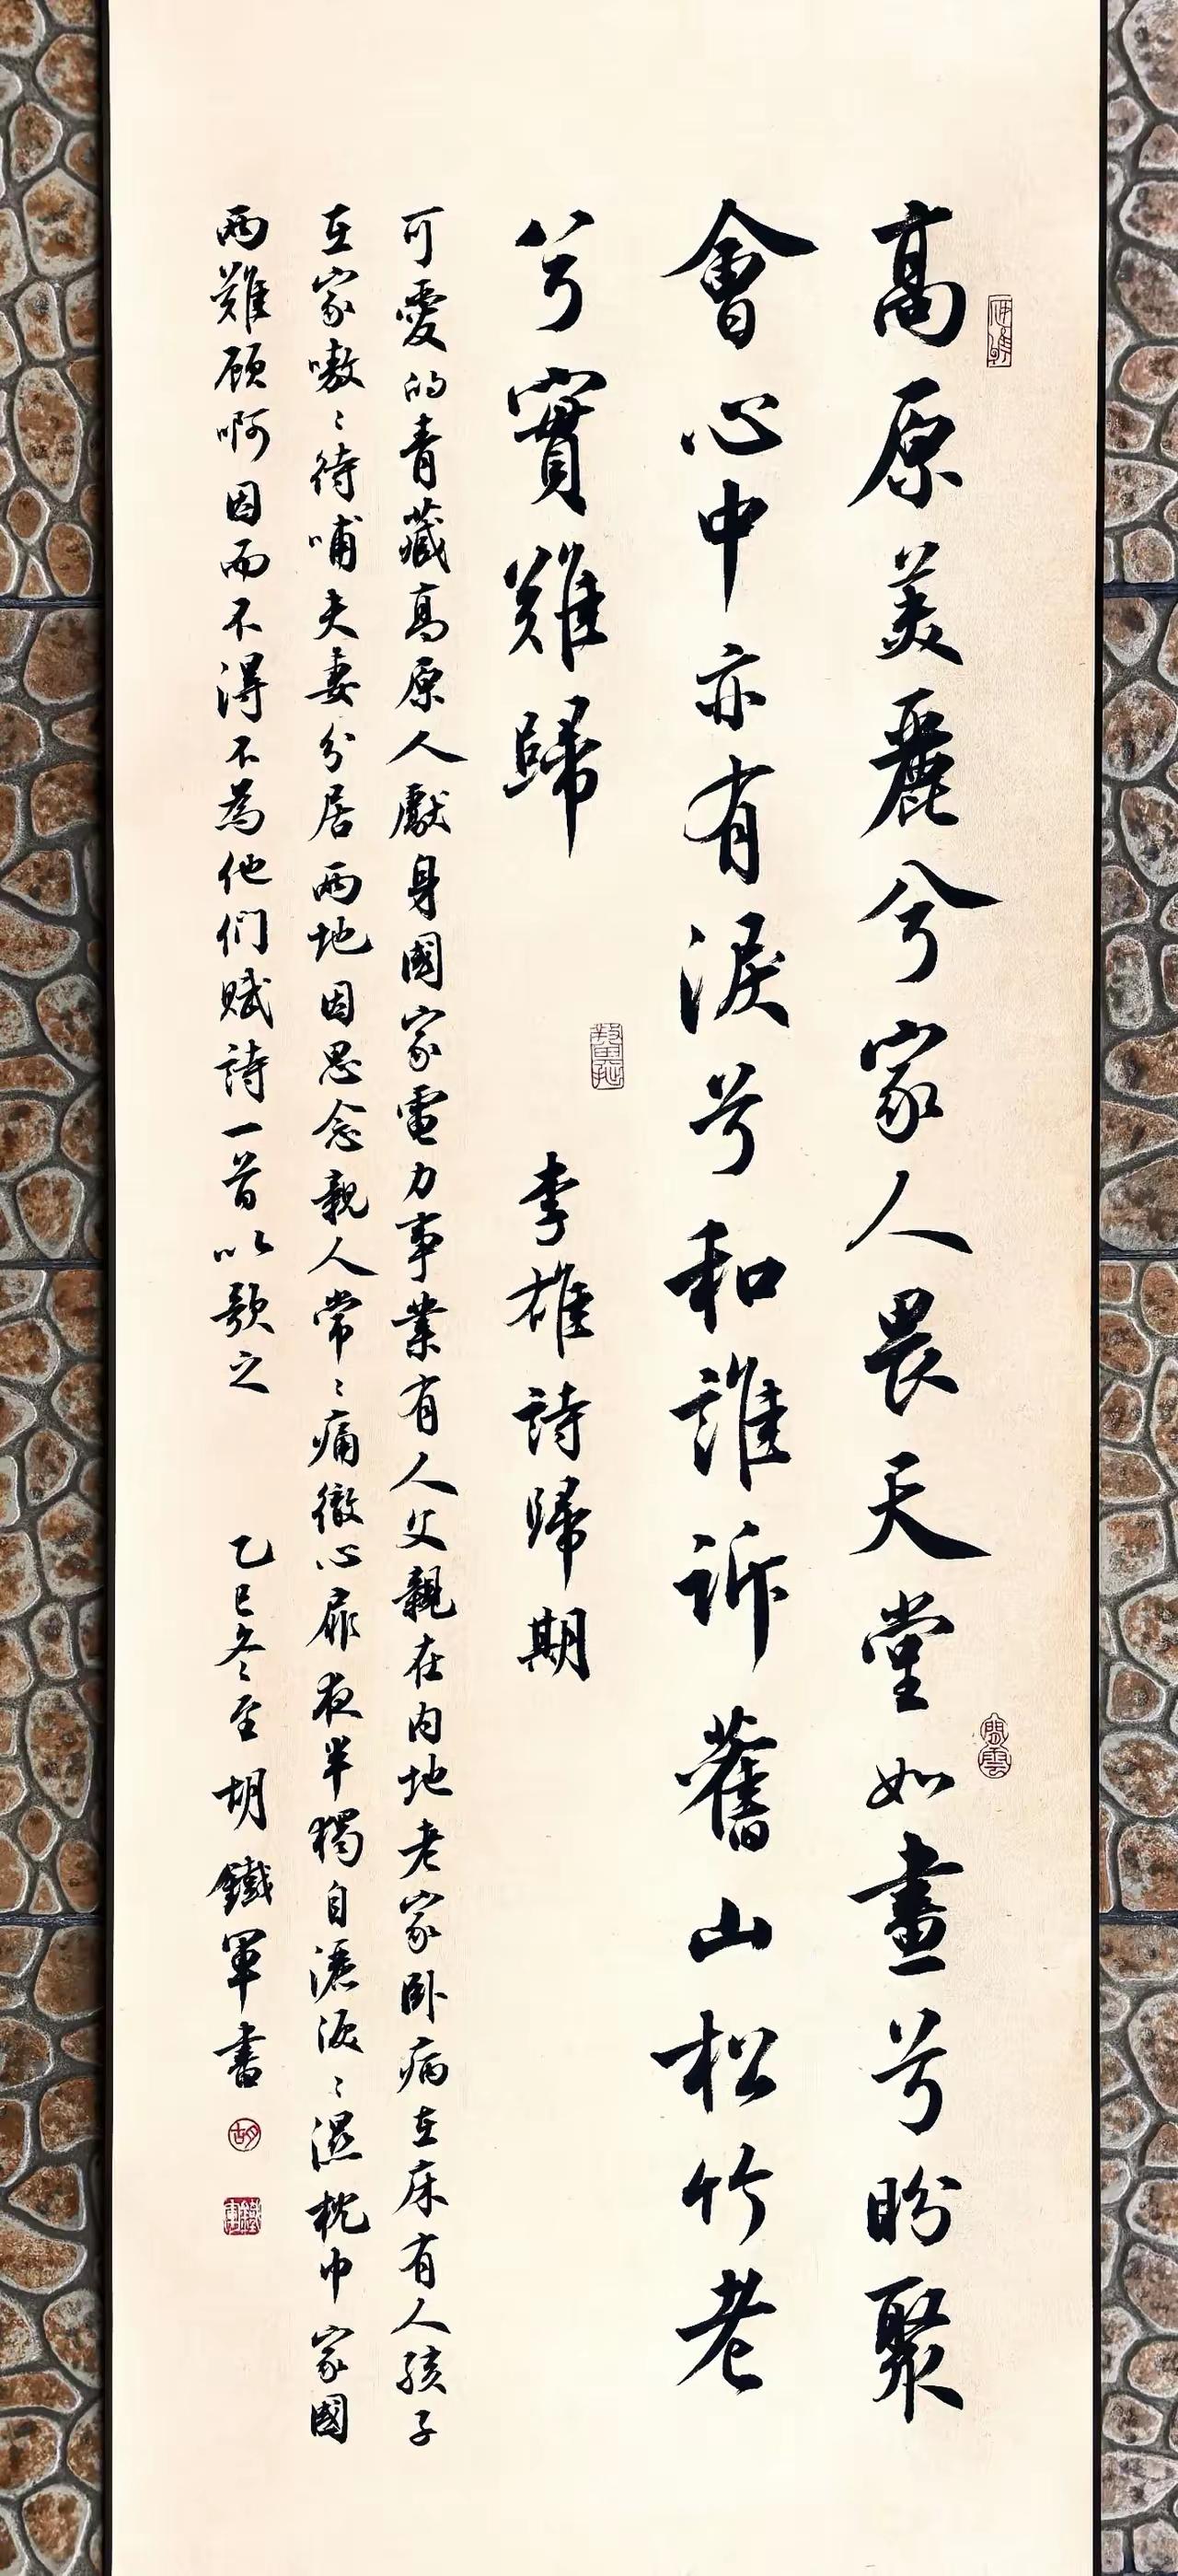 高原美麗兮家人畏天堂如畫兮盼聚
會心中亦有淚兮和誰訴舊山松竹老
兮實難歸
李雄詩歸期
可愛的青藏高原人獻身國家電力事業有人父親在内地老家卧病在床有人孩子
在家嗷〻待哺夫妻分居兩地因思念親人常〻痛徹心扉夜半獨自灑淚〻濕枕巾家國
兩難顧啊因而不得不為他們賦詩一首以歌之
乙巳冬至胡鐵軍書